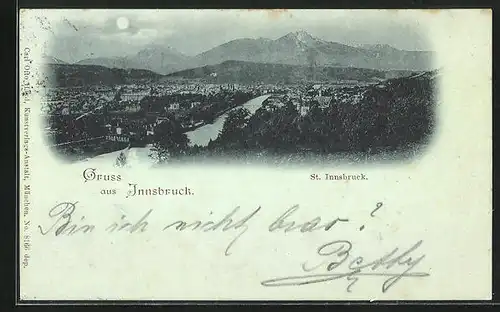 Gruss
aus Innsbruck.
St. Innsbruck.
Bin ich nicht brav?
Betty
Carl Otto Hayd, Kunstverlags-Anstalt, München, No. 8166 dep.